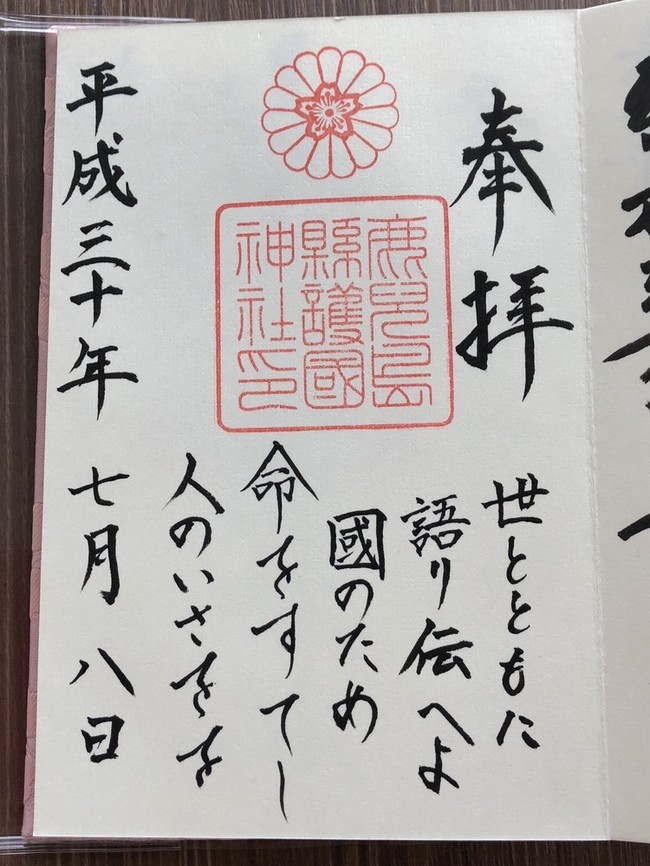 奉拝
鹿児島
縣護國
神社印
世とともに
語り伝へよ
國のため
命をすてし
人のいさをを
平成三十年 七月 八日